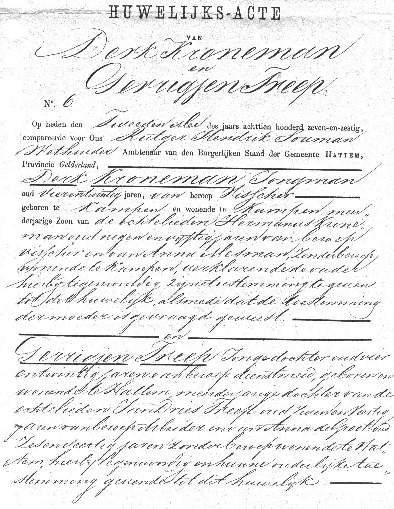 HUWELIJKS-ACTE
VAN
Derk Kroneman
en
Gerrigjen Treep.
N°. 6
Op heden den Tweeden Mei des jaars achttien honderd zeven-en-zestig,
compareerde voor Ons Rutger Hendrik
Wethouder Ambtenaar van den Burgerlijken Stand der Gemeente HATTEM,
Provincie Gelderland,
Derk Kroneman, Jongman
oud vierentwintig jaren, van beroep Visscher
geboren te Kampen en wonende te Kampen min-
derjarige Zoon van de echtelieden Hermanus Krone-
man oud negen en vijftig jaren van beroep
visscher en van Anna Mesman, Zonder beroep,
wonende te Kampen, verklarende de vader
hierbij tegenwoordig zijne toestemming te geven
tot dit huwelijk, alsmede dat de toestemming
der moeder is gevraagd geweest.
en
Gerrigjen Treep Jongedochter oud vier
entwintig jaren van beroep dienstmeid, geboren en
wonende te Hattem, minderjarige dochter van de
echtelieden Treep oud Zeven en veertig
jaren van beroep arbeider en van Anna oud
Zesenveertig jaren zonder beroep wonende te Hat
tem, hierbij tegenwoordig en hunne ouderlijke toe
stemming gevende tot dit huwelijk